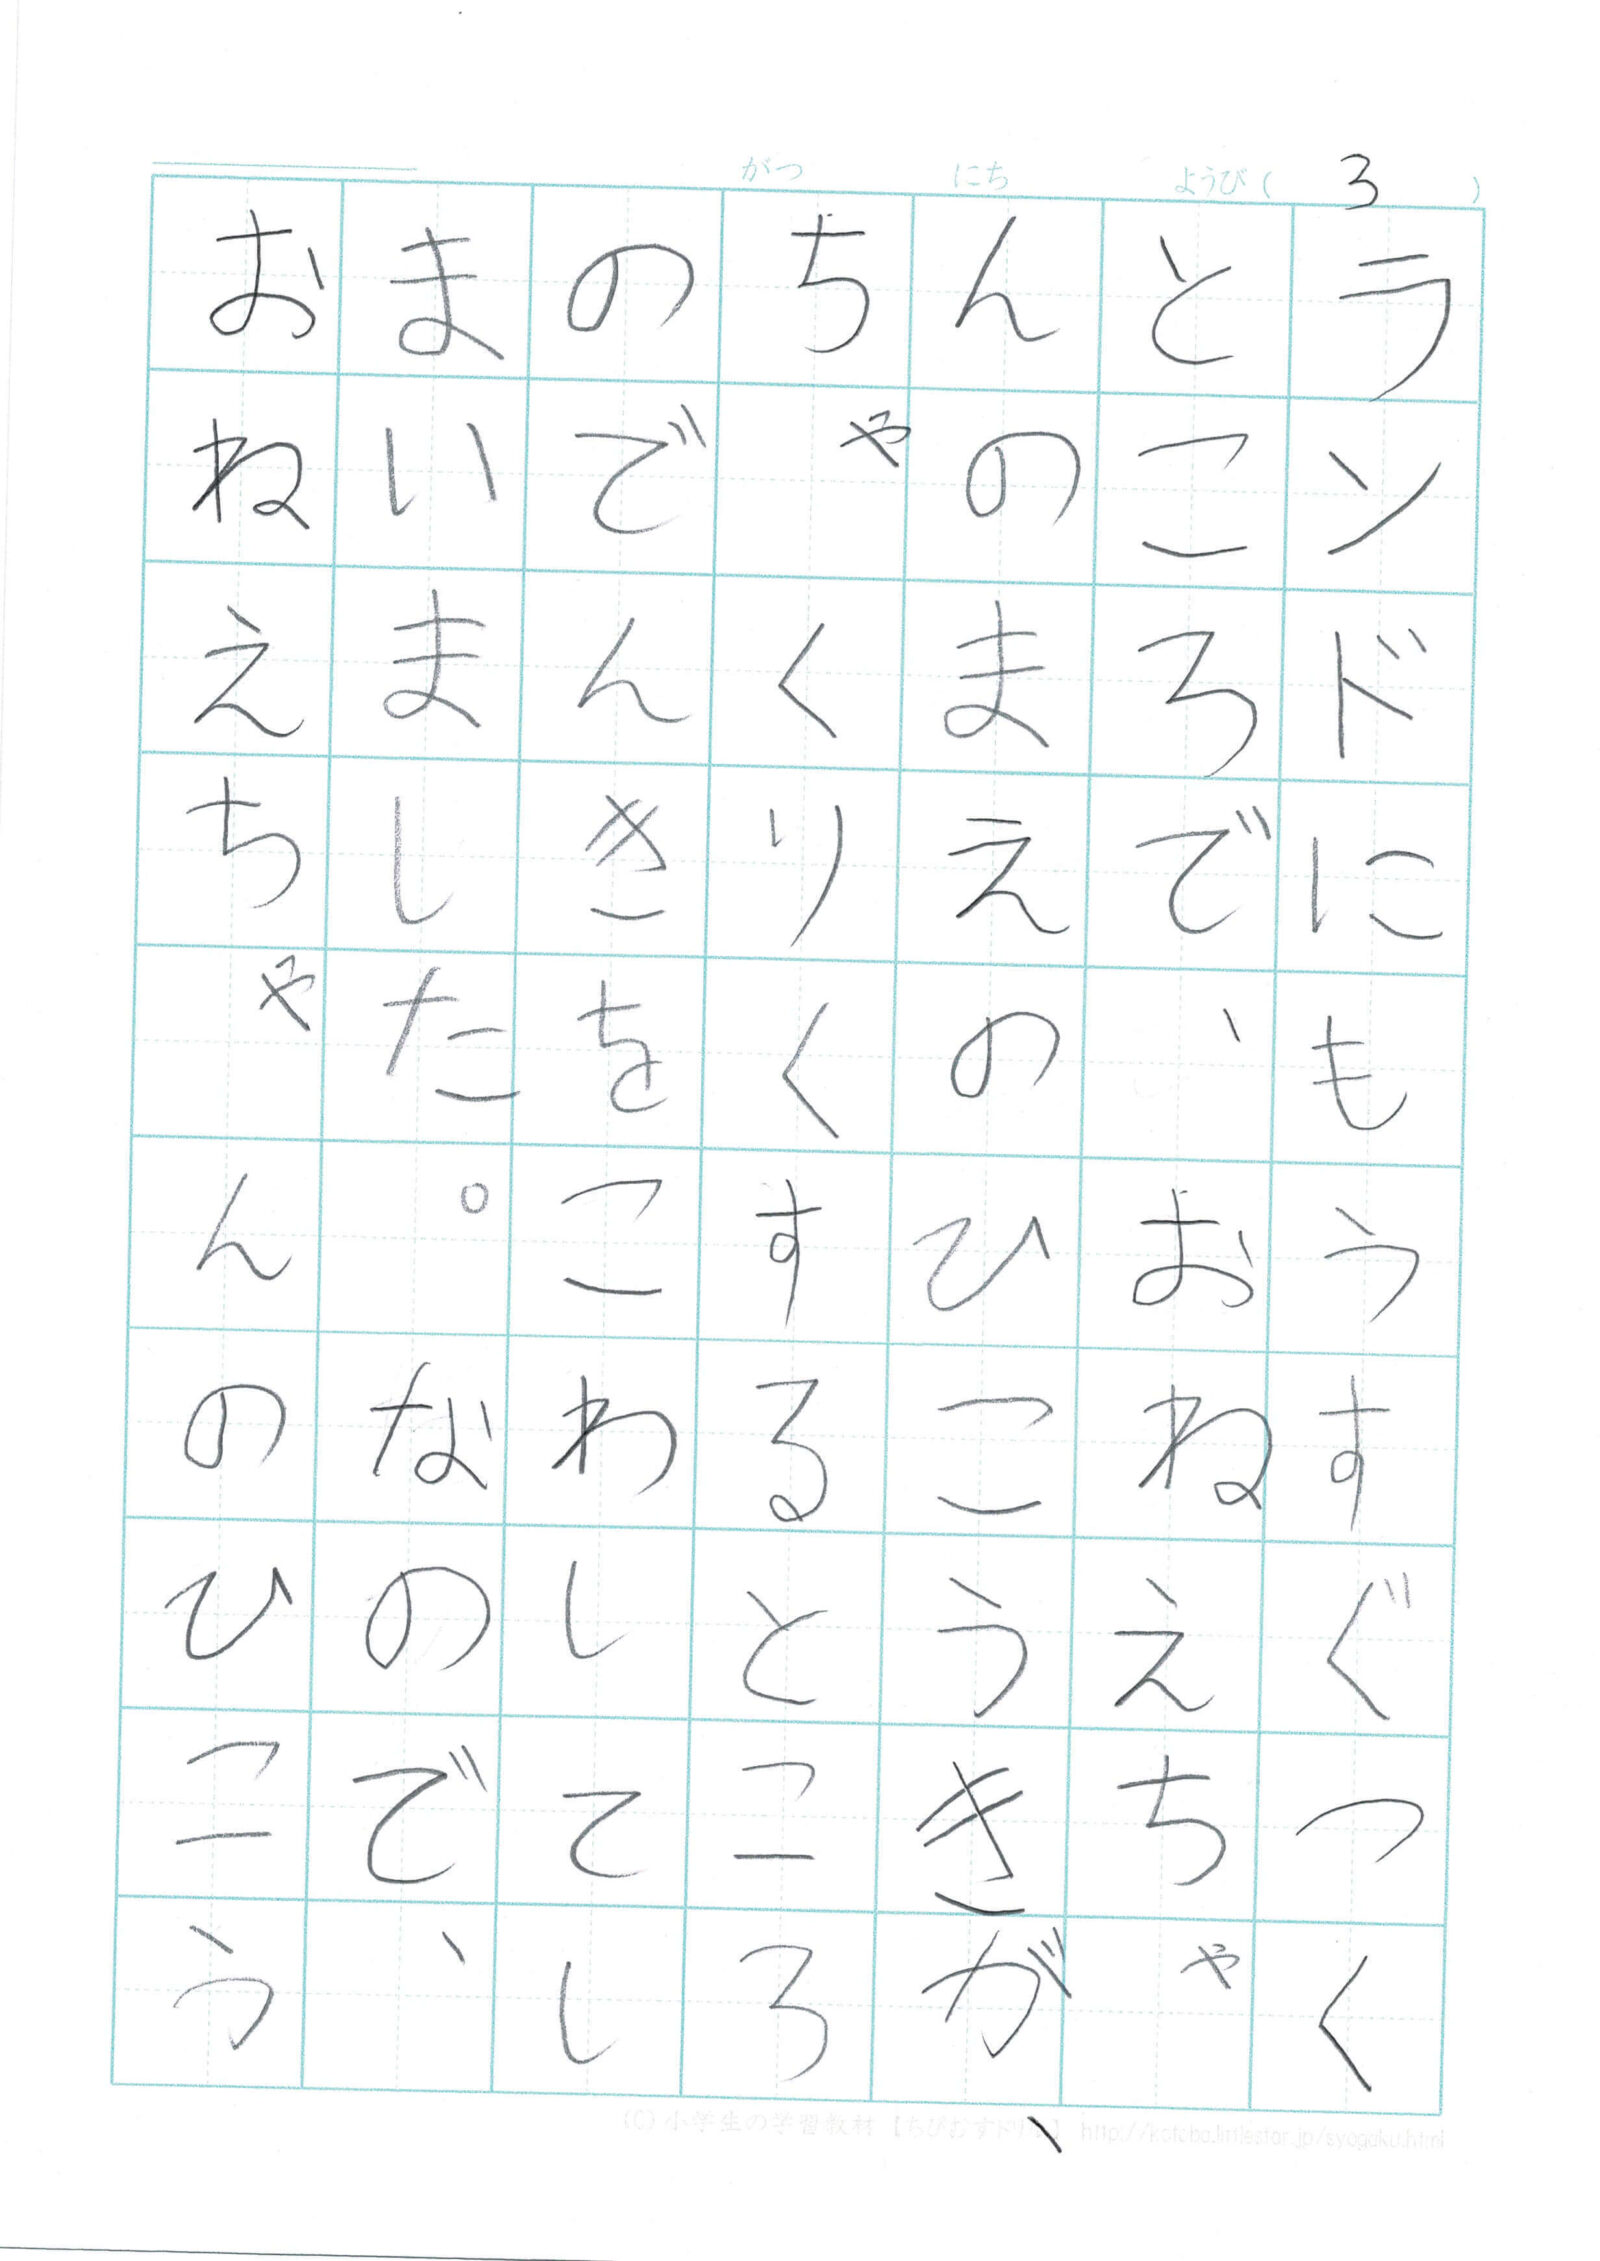 がつ にち ようび( 3 )
ランドにもうすぐつく
ところで、おねえちゃ
んのまえのひこうきが、
ちゃくりくするところ
のでんきをこわしてし
まいました。なので、
おねえちゃんのひこう
(C)小学生の学習教材【ちびむすドリル】 http://kotoba.littlestar.jp/syogaku.html